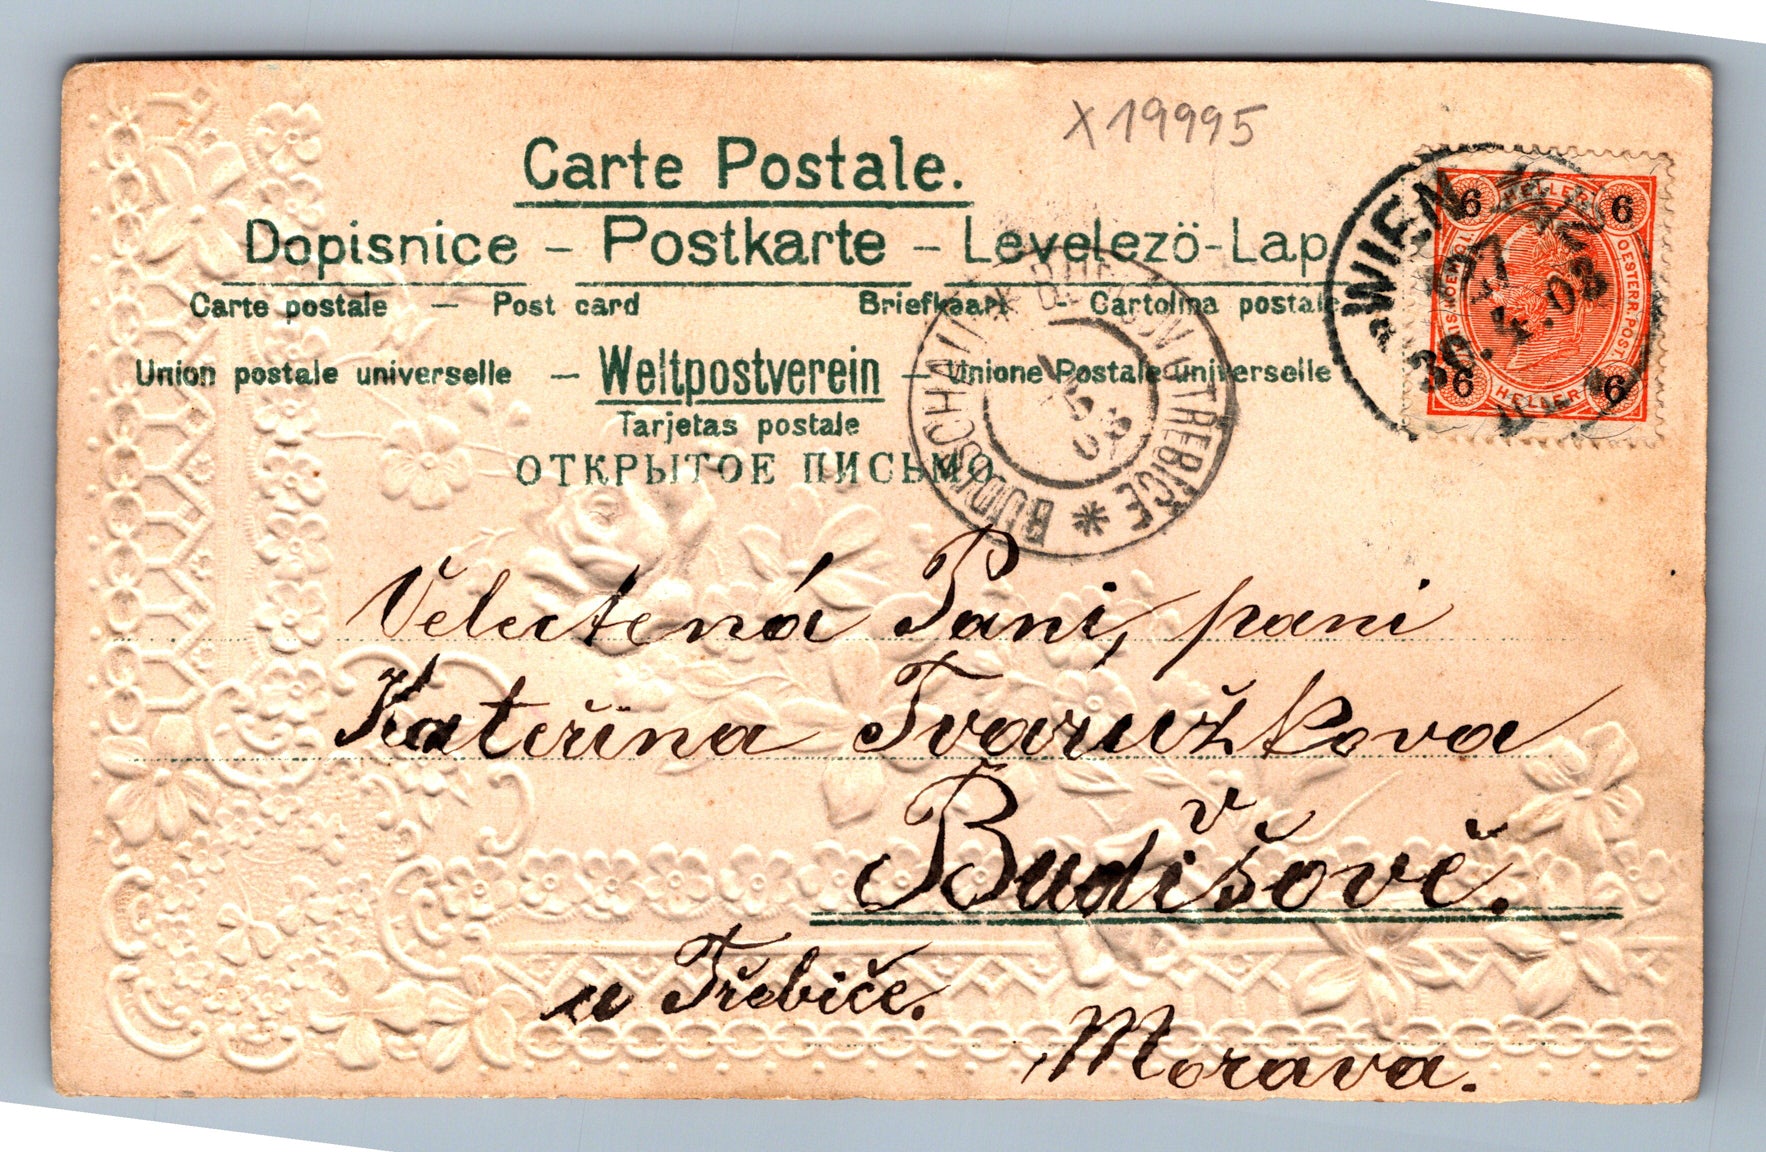 X 19995
Carte Postale.
Dopisnice – Postkarte – Levelezö-Lap
Carte postale — Post card Briefkaart — Cartolina postale
Union postale universelle — Weltpostverein — Unione Postale universelle
Tarjetas postale
ОТКРЫТОЕ ПИСЬМО
WIEN
30.4.03
6 HELLER 6
OESTERR. POST.
6 HELLER 6
TREBIČE * BUDISCHAU *
1
5
03
Velectená Paní, paní
Kateřina Tvaružkova
v
Budišově.
u Třebíče.
Morava.